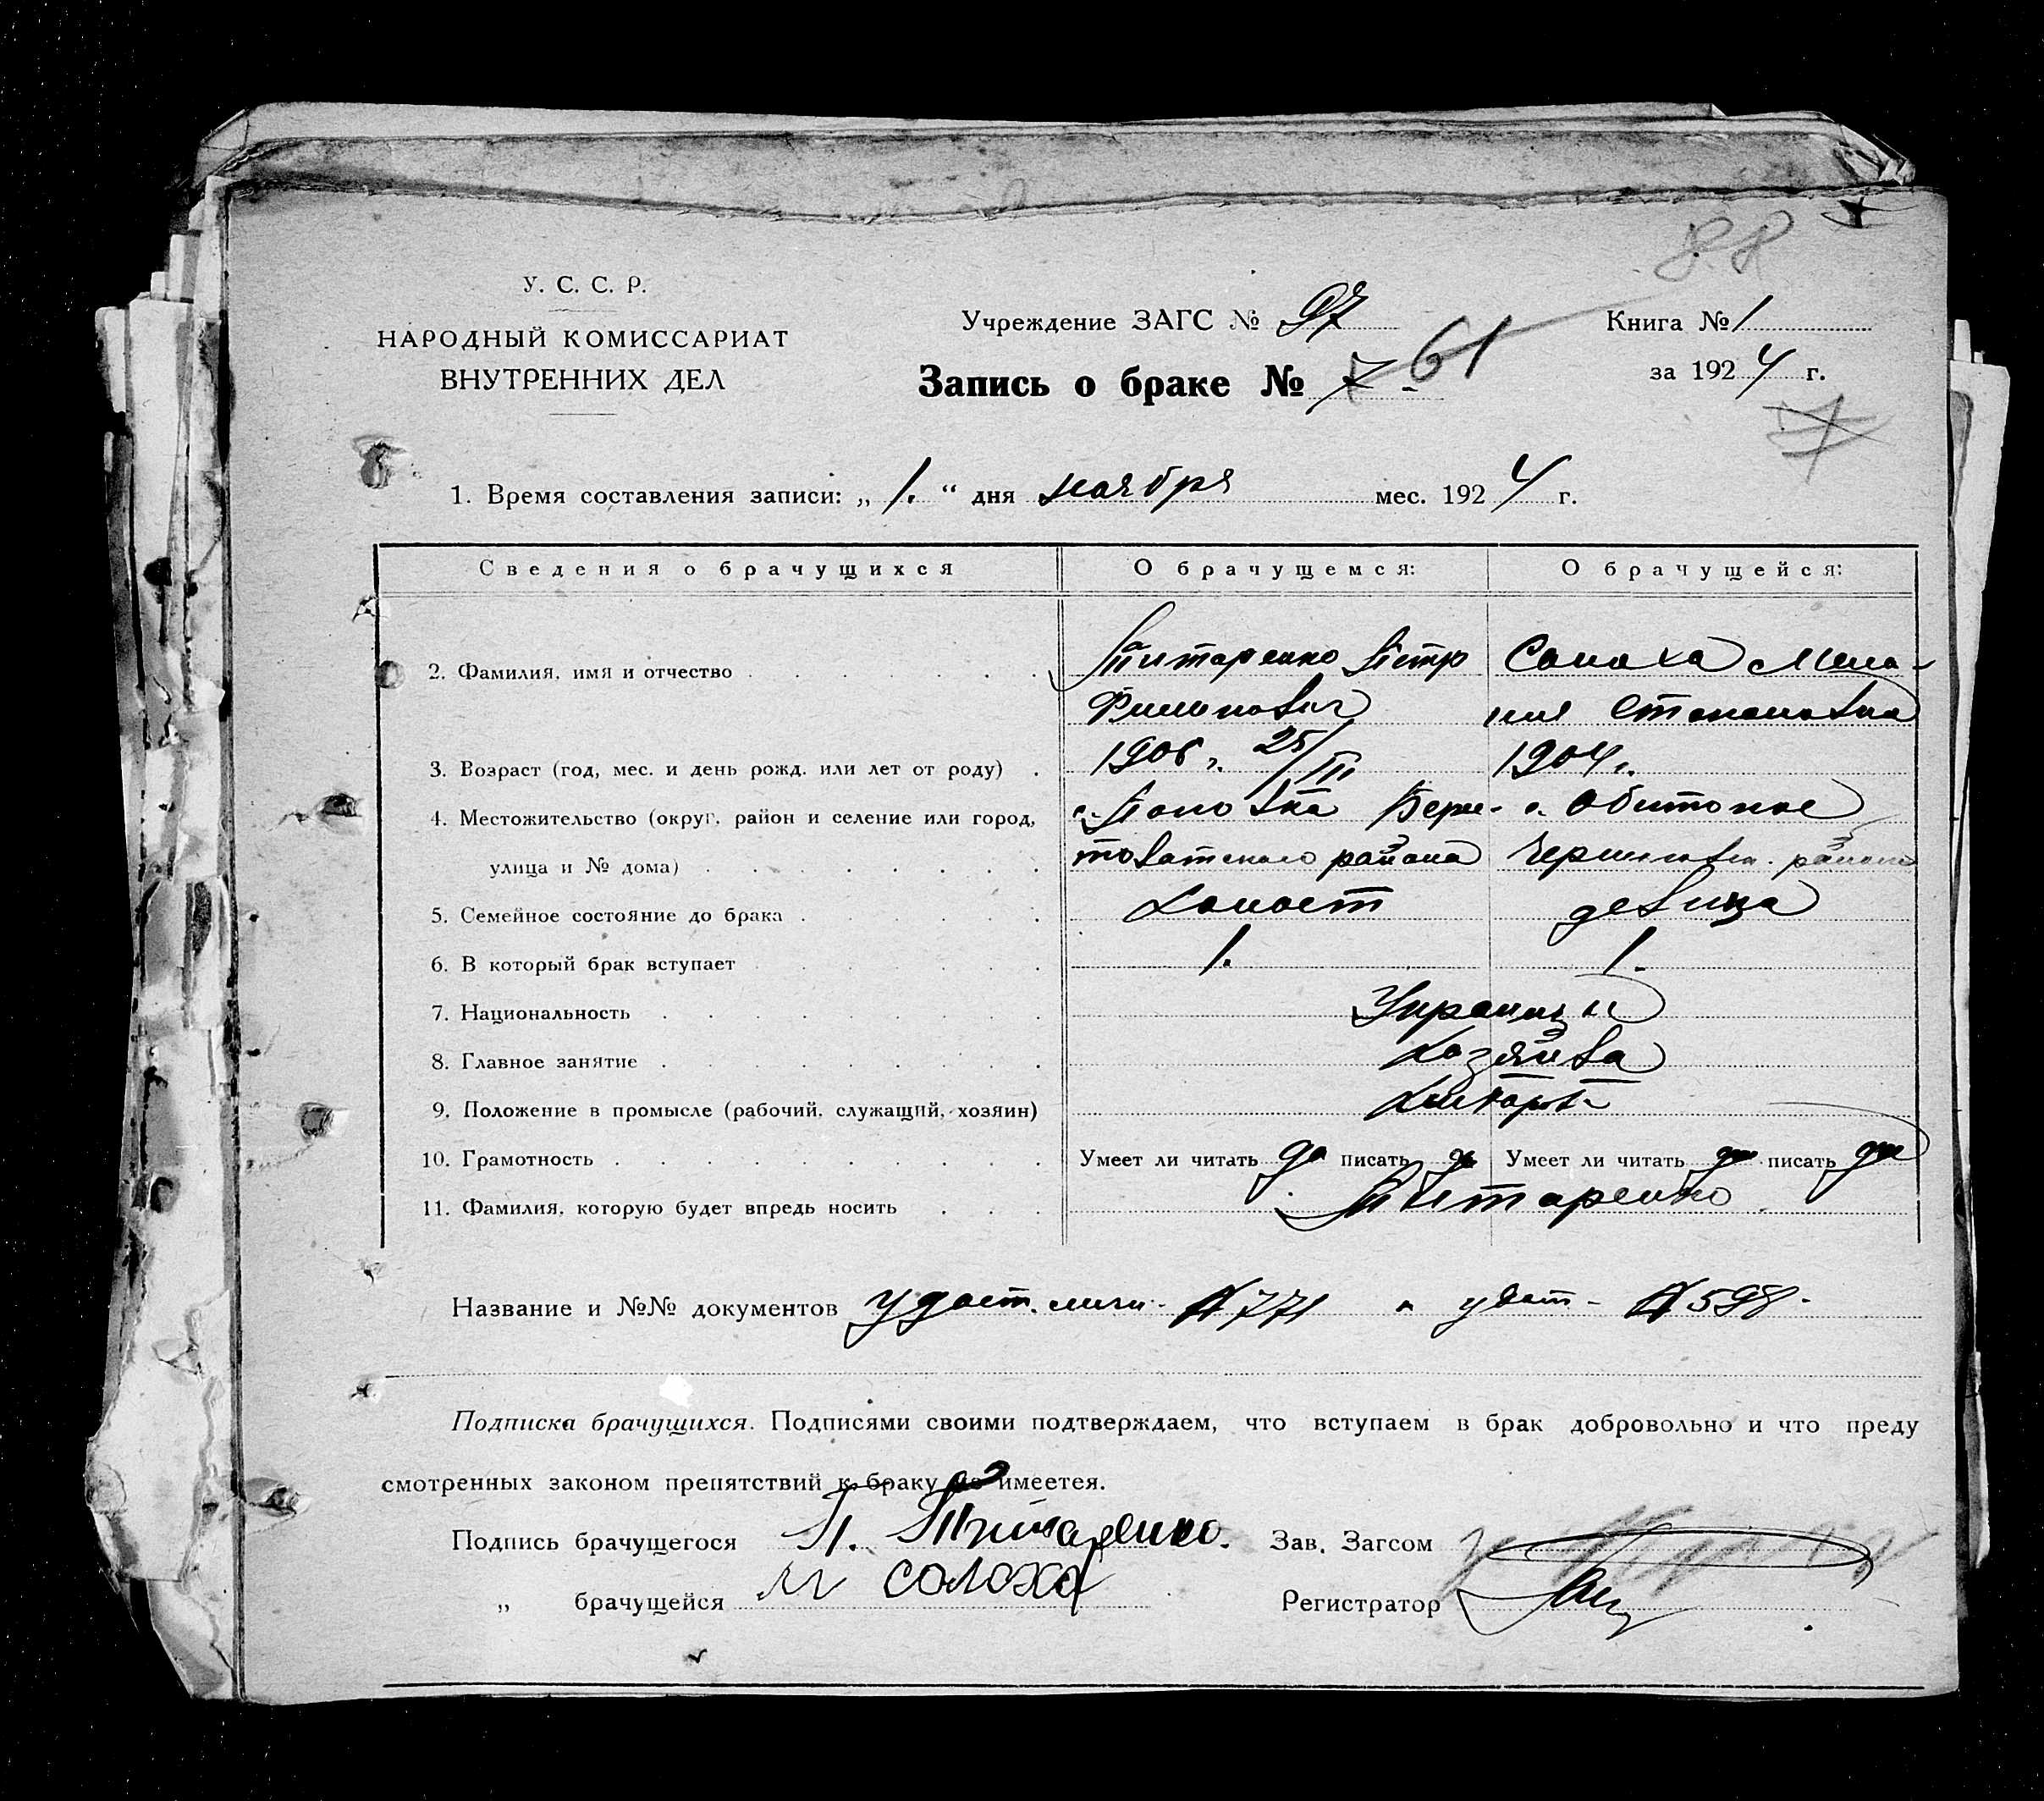 88
У. С. С. Р.
НАРОДНЫЙ КОМИССАРИАТ
ВНУТРЕННИХ ДЕЛ
Учреждение ЗАГС № 97
Книга № 1
Запись о браке № 7 - 61
за 1924 г.
7
1. Время составления записи: „ 1. “ дня ноября мес. 1924 г.
Сведения о брачущихся О брачущемся: О брачущейся:
2. Фамилия, имя и отчество Титаренко Петр Солоха Мела-
Филипович ния Степановна
3. Возраст (год, мес. и день рожд. или лет от роду) 1906 г. 25/III 1904 г.
4. Местожительство (округ, район и селение или город, с. Поповка Бери- с. Обиточне
улица и № дома) товатского района Черниговск. района
5. Семейное состояние до брака холост девица
6. В который брак вступает 1. 1.
7. Национальность Украинцы
8. Главное занятие Хозяйва
9. Положение в промысле (рабочий, служащий, хозяин) Хлебороб
10. Грамотность Умеет ли читать да писать да Умеет ли читать да писать да
11. Фамилия, которую будет впредь носить Титаренко
Название и №№ документов удост. личн. № 771 и удост - № 598 -
Подписка брачущихся. Подписями своими подтверждаем, что вступаем в брак добровольно и что преду
смотренных законом препятствий к браку не имеетея.
Подпись брачущегося П. Титаренко. Зав. Загсом
„ брачущейся М Солоха Регистратор